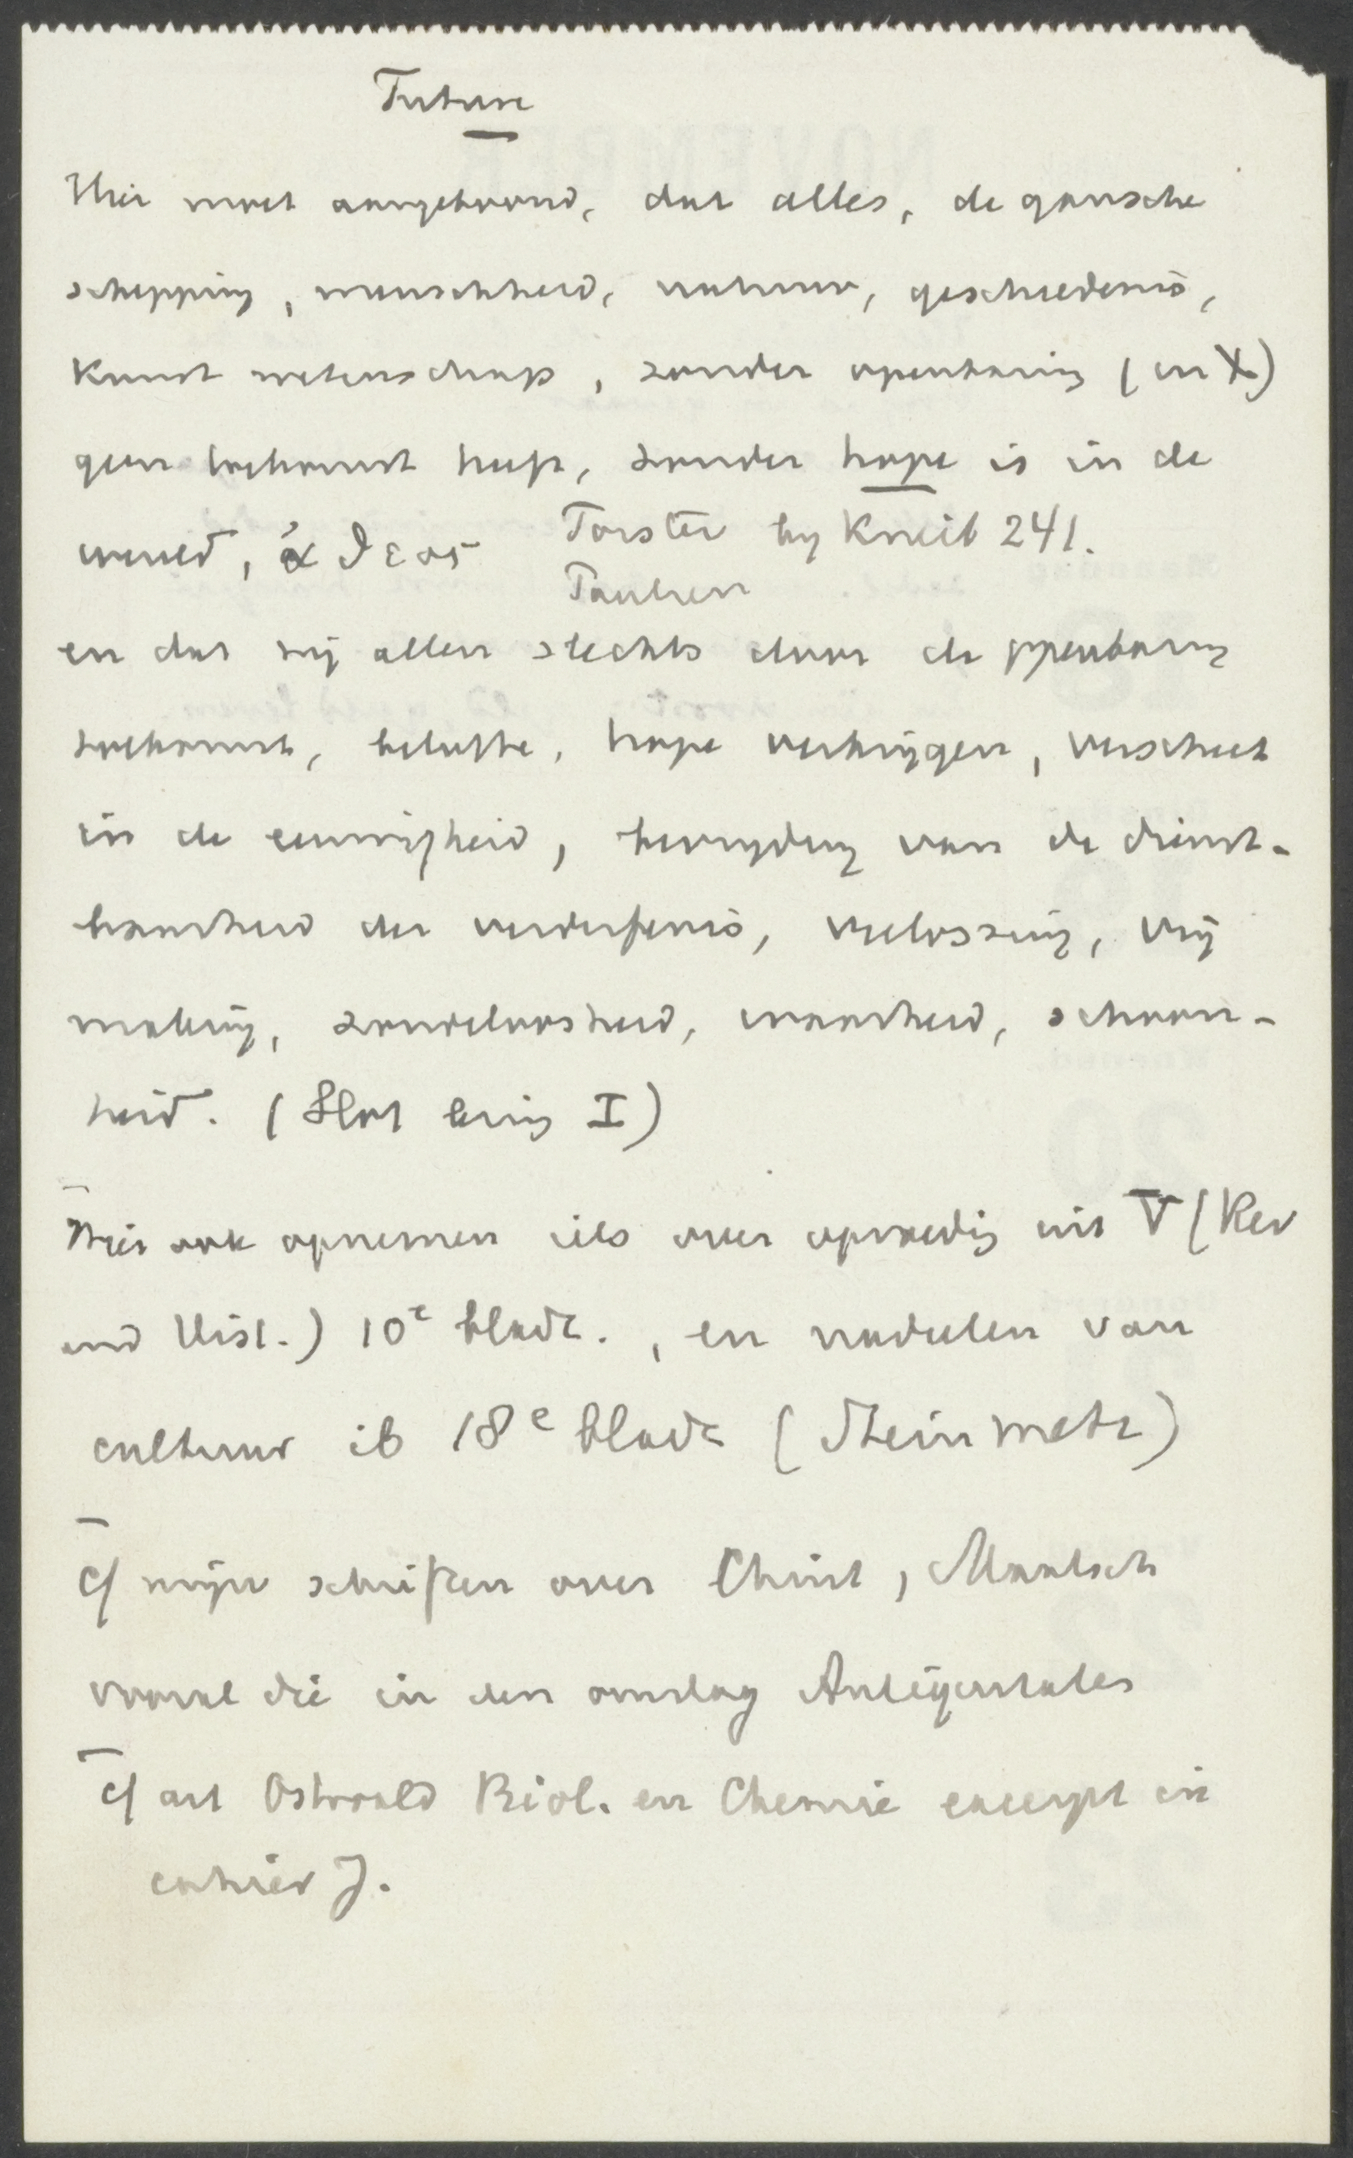 Future
Hier moet aangetoond, dat alles, de gansche
schepping, menschheid, natuur, geschiedenis,
kunst wetenschap, zonder openbaring (in X)
geen toekomst heeft, zonder hope is in de
wereld, ἄθεος Forster by Kneib 241.
en dat wij allen slechts door de openbaring
toekomst, belofte, hope verkrijgen, verschiet
in de eeuwigheid, bevrijding van de dienst-
baarheid der verderfenis, verlossing, vrij
making, zondeloosheid, waarheid, schoon-
heid. (Slot lezing I)
Hier ook opnemen iets over opvoeding uit V (Rev
and Hist.) 10e bladz., en nadeelen van
cultuur ib 18e bladz (Steinmetz)
cf mijn schriften over Christ, Maatsch
vooral die in den omslag
cf art Ostwald Biol. en Chemie excerpt in
cahier J.